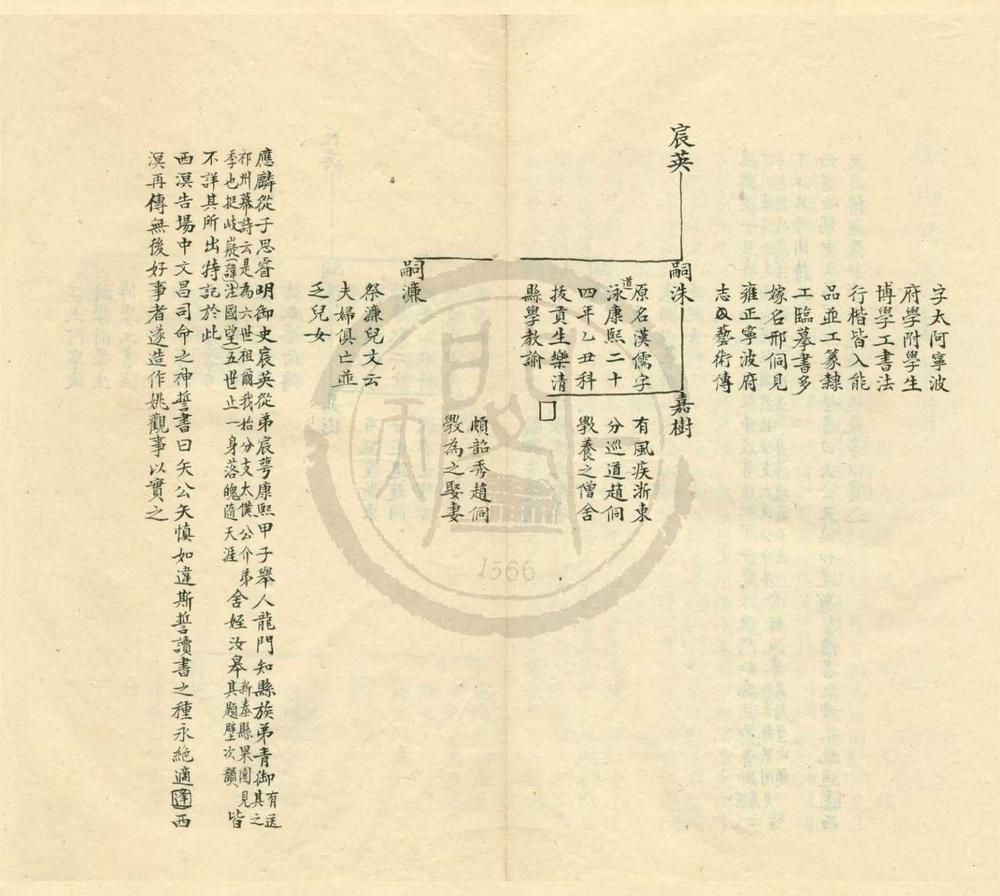 宸英
嗣洙
字太阿寧波
府學附學生
博學工書法
行楷皆入能
品並工篆隸
工臨摹書多
嫁名邢侗見
雍正寧波府
志及藝術傳
原名漢儒字道
泳康熙二十
四年乙丑科
拔貢生樂清
縣學教諭
嘉樹
有風疾浙東
分巡道趙侗
斆養之僧舍
頗韶秀趙侗
斆為之娶妻
嗣濂
祭濂兒文云
夫婦俱亡並
乏兒女
應麟從子思睿明御史宸英從弟宸萼康熙甲子舉人龍門知縣族弟青御有送其之
祁州幕詩云是為六世祖爾我怡分支太僕公介弟
季也挺岐嶷諱汪國望五世止一身落魄隨天涯舍姪汝皋新泰縣果園見其題壁次韻皆
不詳其所出特記於此
西溟告場中文昌司命之神誓書曰矢公矢慎如違斯誓讀書之種永絕適逢西
溟再傳無後好事者遂造作姚觀事以實之
1566